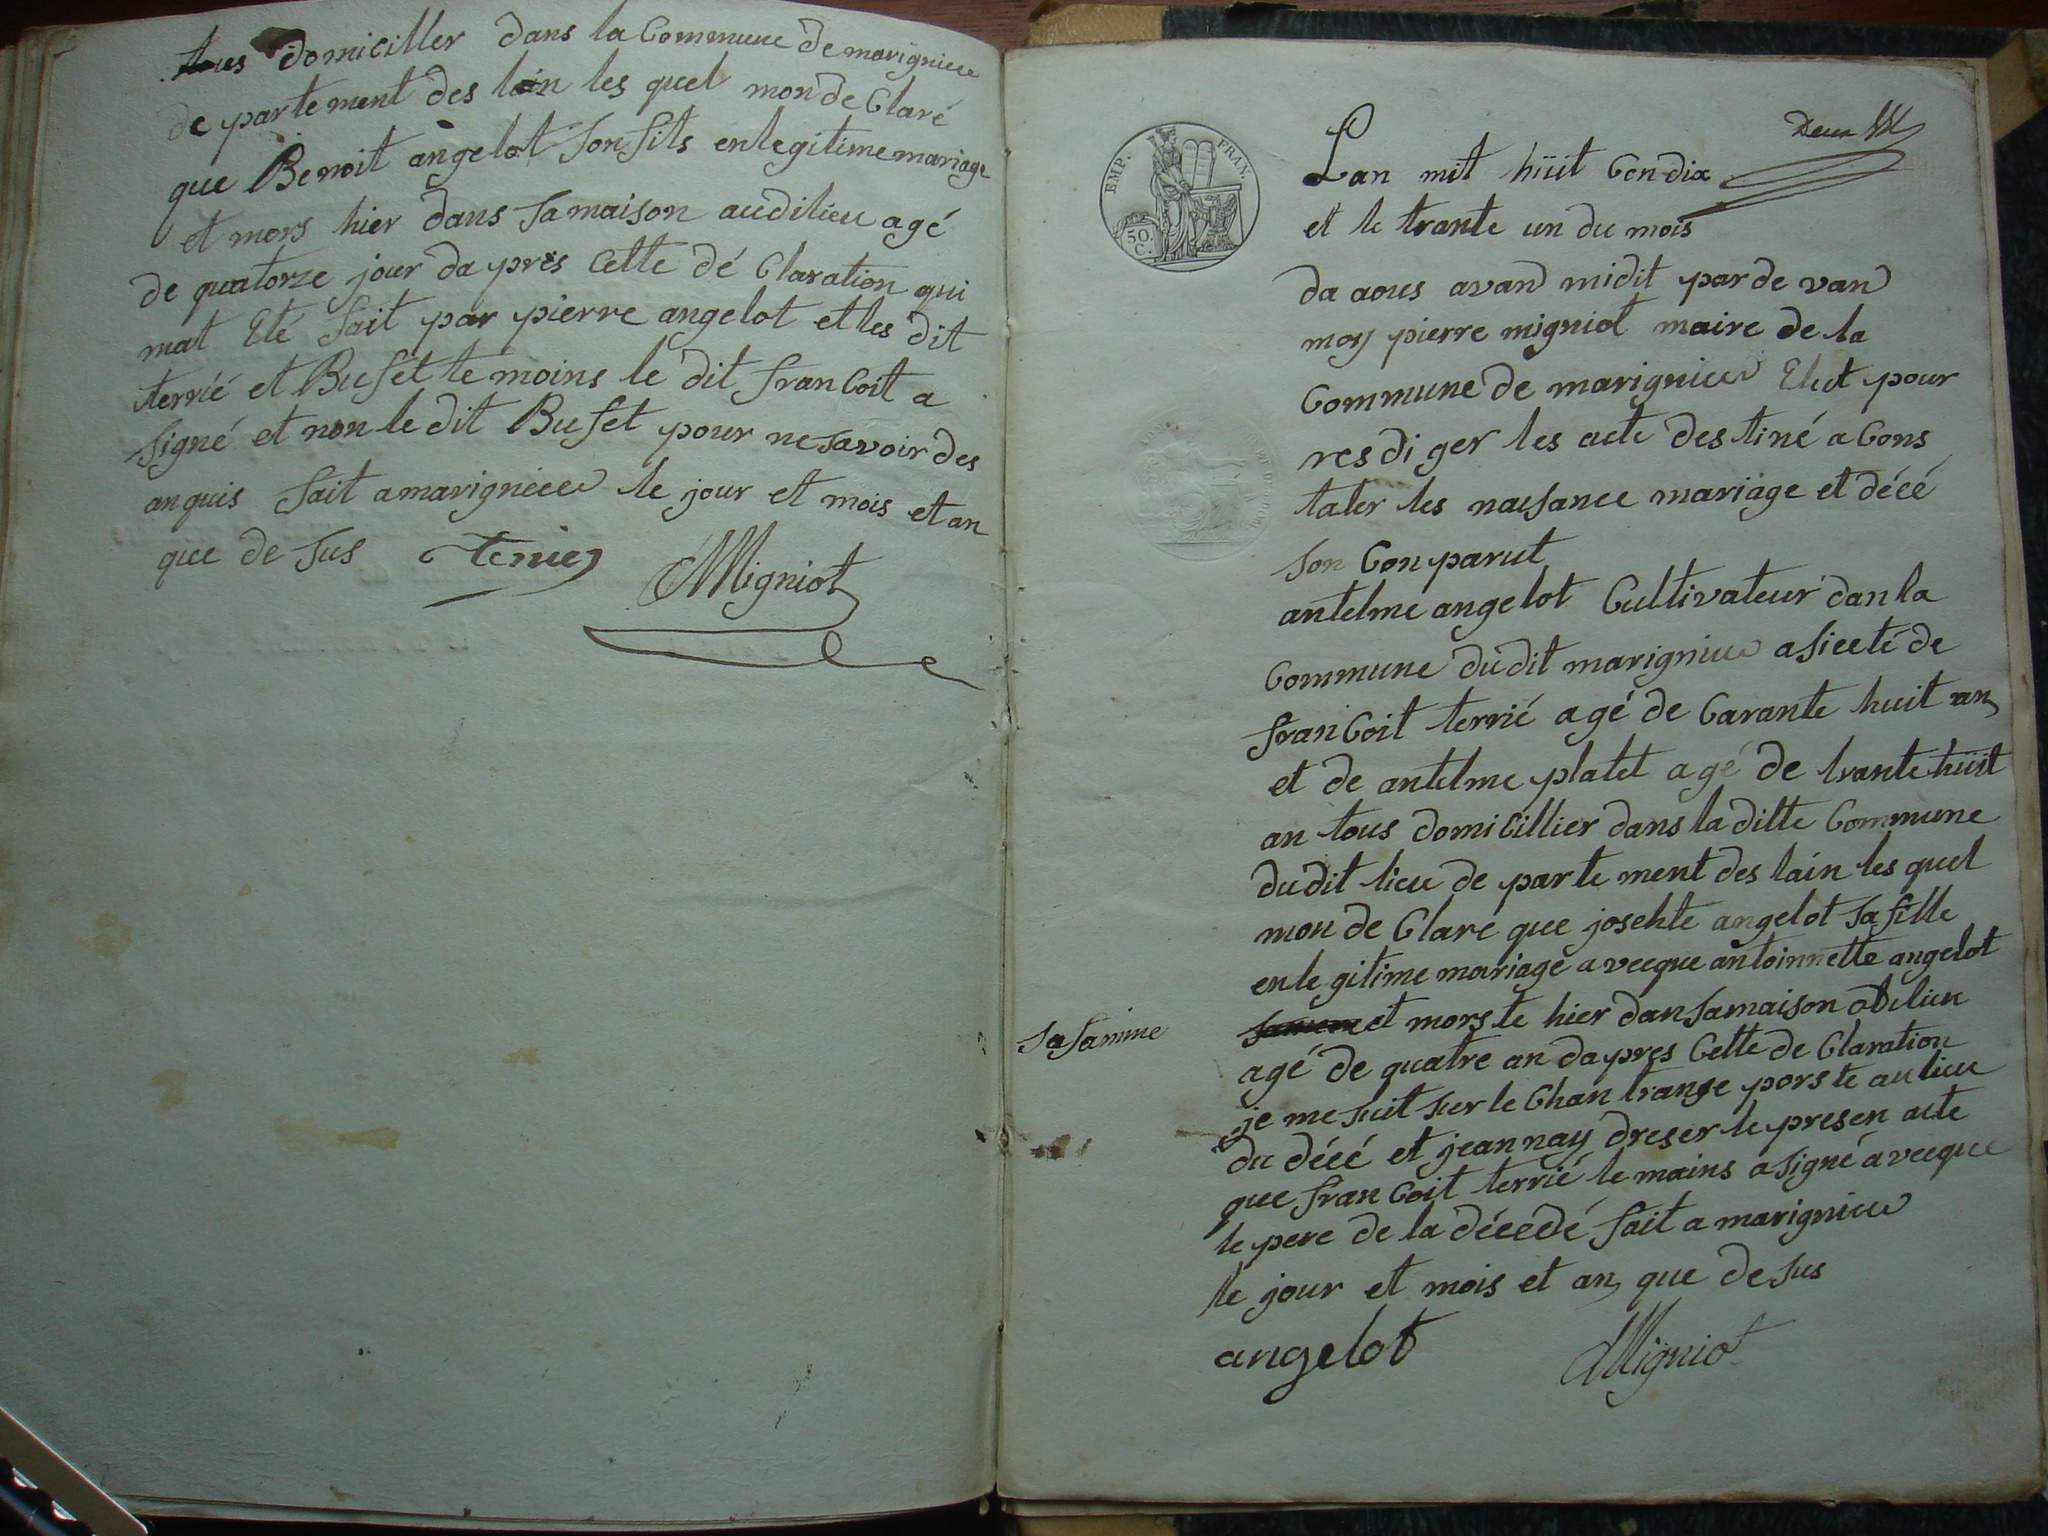 tous domiciller dans la Commune de marignieu
de partement des lain les quel mon de Claré
que Benoit angelot son fits en legitime mariage
et mors hier dans sa maison audilieu agé
de quatorze jour da prés cette dé Claration qui
mat Eté fait par pierre angelot et les dit
terrié et Bufet te moins le dit franCoit a
signé et non le dit Bufet pour ne savoir des
anquis fait a marignieu le jour et mois et an
que de sus
Migniot
EMP. FRAN.
50.
C.
Deux
Lan mit hüit Cen dix
et le trante un du mois
da aous avan midit par de van
moy pierre migniot maire de la
Commune de marignieu Elut pour
res di ger les acte des tiné a Cons
tater les naisance mariage et décé
son Conparut
antelme angelot Cultivateur dan la
Commune dudit marignieu asicté de
franCoit terrié agé de Carante huit an
et de antelme platet agé de trante hüit
an tous domiCillier dans la ditte Commune
dudit lieu de parte ment des lain les quel
mon de Claré que josehte angelot sa fille
en le gitime mariage avecque antoinnette angelot
sa famme
et morste hier dan sa maison audilieu
agé de quatre an da prés Cette de Claration
je me suit sur le Chan trange pors té au lieu
du décé et jeannay dreser le presen acte
que franCoit terrié te moins a signé avecque
le pere de la décédé fait a marignieu
le jour et mois et an que de sus
angelot Migniot